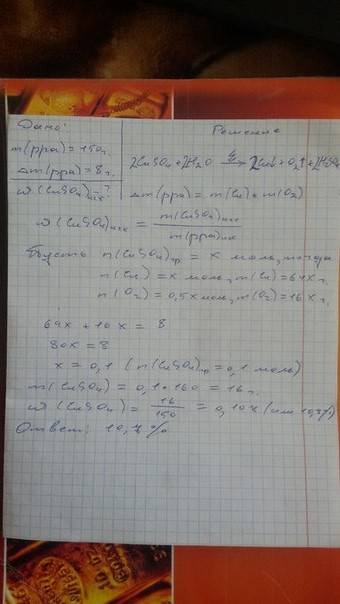 Дано:
Решение
m(рра) = 150г.
Δm(рра) = 8 г.
ω(CuSO4)исх - ?
2CuSO4 + 2H2O → 2Cu↓ + O2↑ + 2H2SO4
Δm(рра) = m(Cu) + m(O2)
ω(CuSO4)исх = m(CuSO4)исх / m(рра)исх
Пусть n(CuSO4)пр = x моль, тогда
n(Cu) = x моль, m(Cu) = 64x г.
n(O2) = 0,5x моль, m(O2) = 16x г.
64x + 16x = 8
80x = 8
x = 0,1 (n(CuSO4)пр = 0,1 моль)
m(CuSO4) = 0,1 • 160 = 16 г.
ω(CuSO4) = 16 / 150 = 0,107 (или 10,7%)
Ответ: 10,7 %